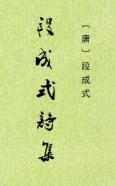 〔唐〕段成式
段成式詩集